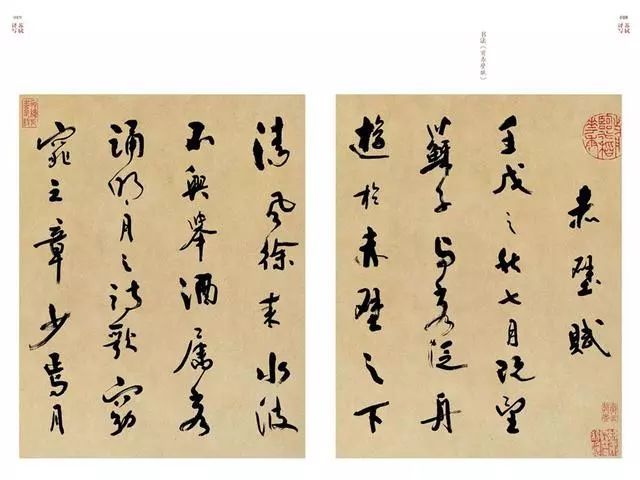 书法《前赤壁赋》
赤壁賦
壬戌之秋七月既望
蘇子与客泛舟
遊於赤壁之下
清風徐来水波
不興舉酒属客
誦明月之詩歌窈
窕之章少焉月